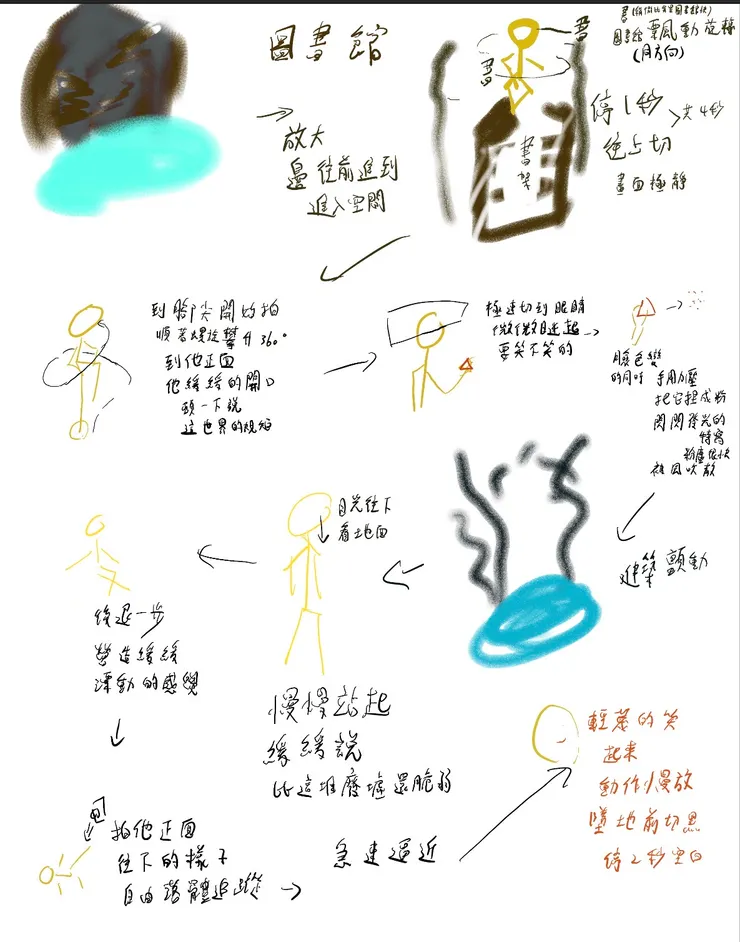 圖書館
放大
邊往前進到
進入空間
圖書館飄動旋轉
(同方向)
書
書
書架
停1秒
>共4秒
畫面極靜
到腳尖開始拍
順著螺旋攀升360°
到他正面
他緩緩的開口
頭一下說
這世界的規矩
極速切到眼睛
微微瞇起
要笑不笑的
臉色變
的同時 手用力壓
把它捏成粉
閃閃發光的
特寫
粉塵很快
被風吹散
建築 顫動
目光往下
看地面
慢慢站起
緩緩說
比這堆廢墟還脆弱
後退一步
營造緩緩
漂動的感覺
拍他正面
往下的樣子
自由落體追蹤
急速逼近
輕蔑的笑
起來
動作慢放
墜地前切黑
停2秒空白